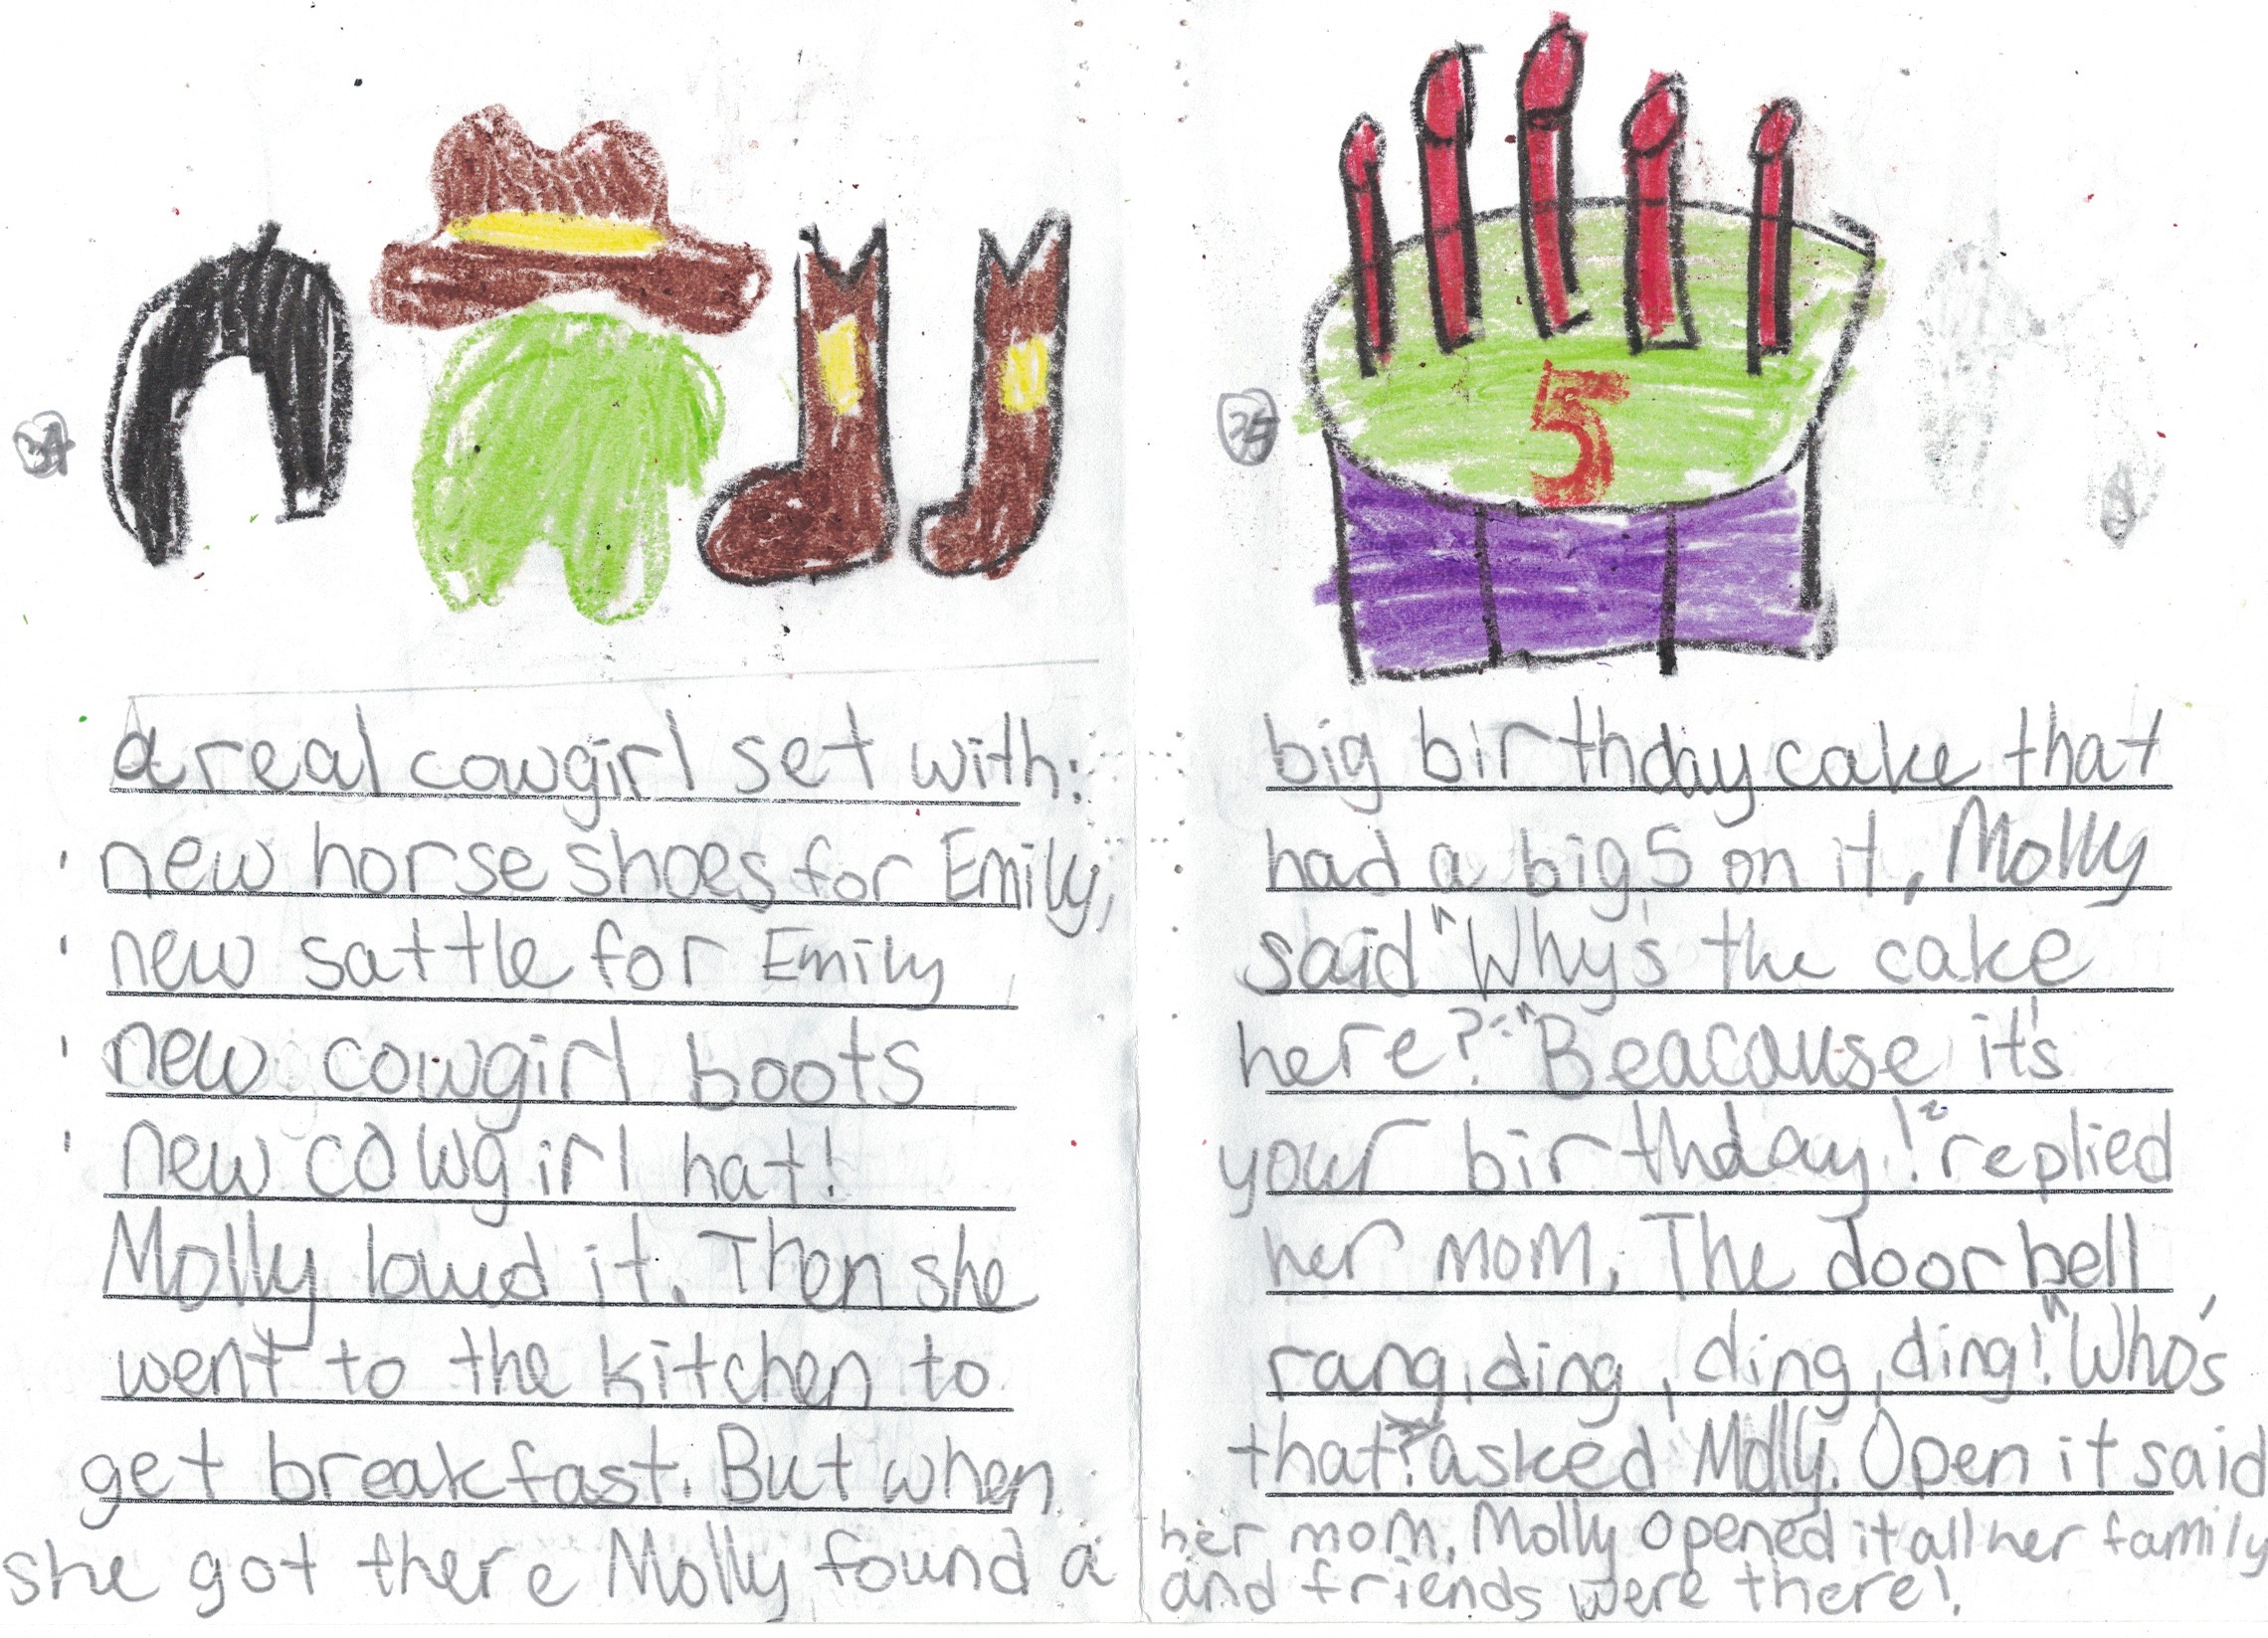 34
a real cowgirl set with:
' new horse shoes for Emily,
' new sattle for Emily
' new cowgirl boots
' new cowgirl hat!
Molly loved it. Then she
went to the kitchen to
get breakfast. But when
she got there Molly found a
35
5
big birthday cake that
had a big 5 on it, Molly
said "Why's the cake
here?" "Beacause it's
your birthday!" replied
her mom. The doorbell
rang, ding, ding, ding! "Who's
that?" asked Molly. Open it said
her mom. Molly opened it all her family
and friends were there!